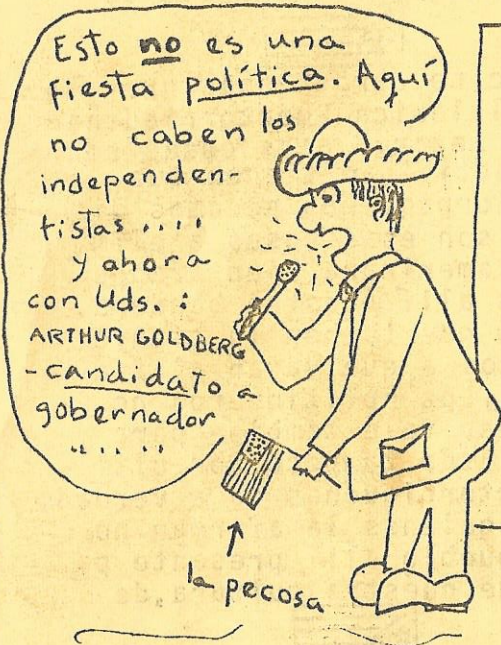 Esto no es una
fiesta política. Aquí
no caben los
independen-
tistas ....
y ahora
con Uds. :
ARTHUR GOLDBERG
-candidato a
gobernador
.. .. ..
la pecosa